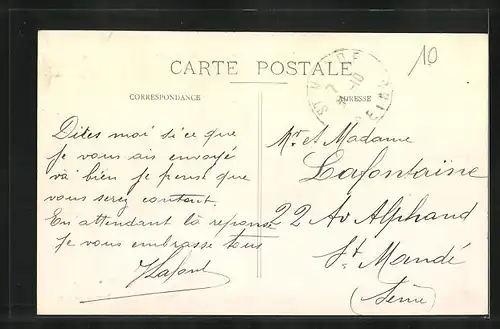 10
CARTE POSTALE
CORRESPONDANCE
ADRESSE
Dites moi si ce que
je vous ais envoyé
va bien je pense que
vous serez contant.
En attendant la reponse
Je vous embrasse tous
Mr et Madame
Lafontaine
22 Av Alphand
St Mandé
(Seine)